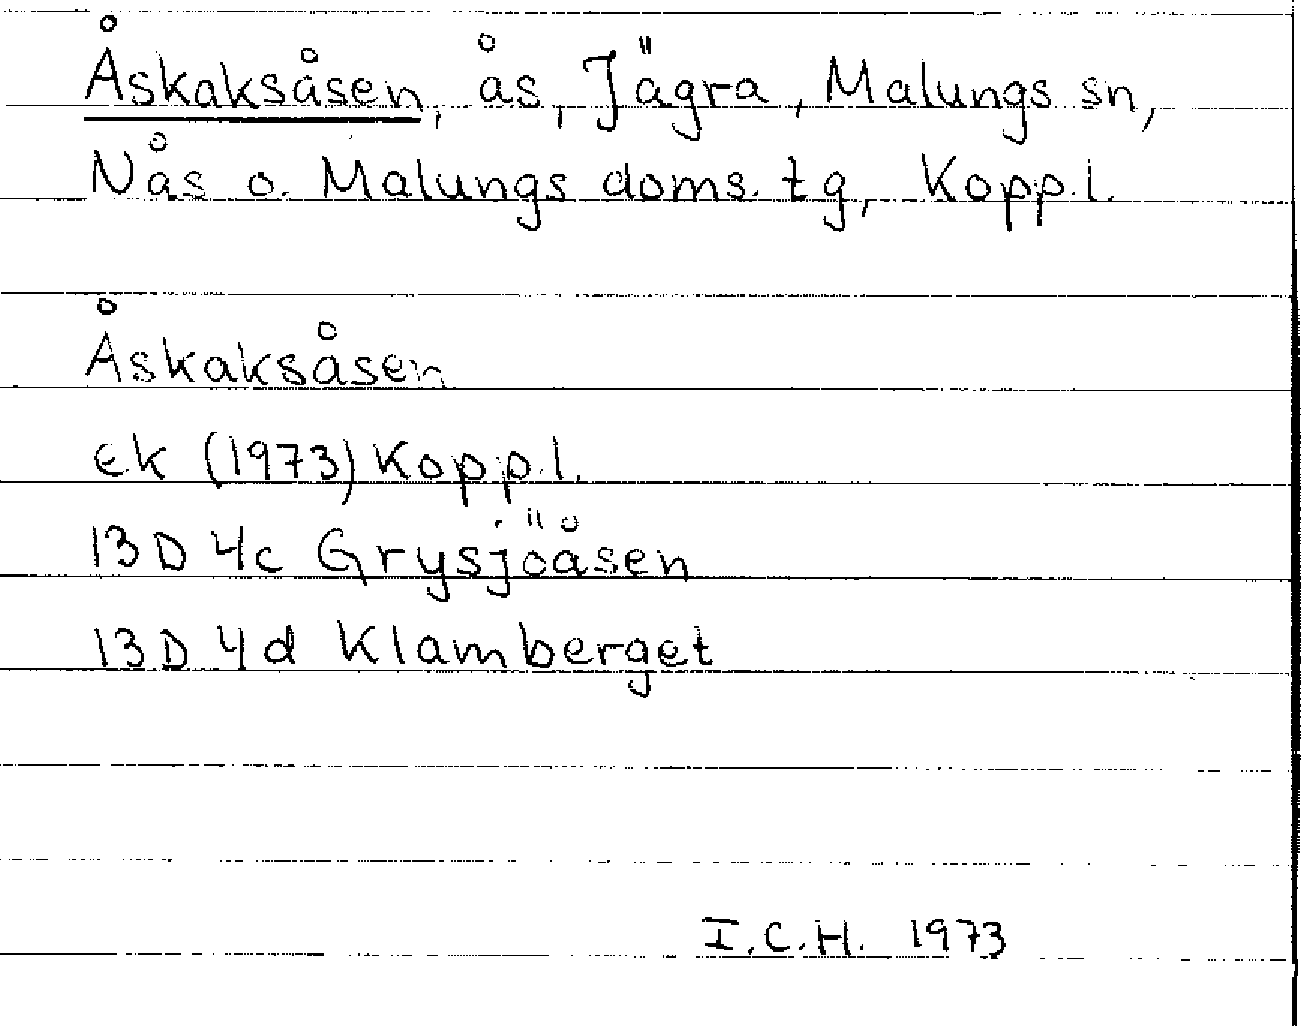 Åskaksåsen, ås, Jägra, Malungs sn,
Nås o. Malungs doms. tg, Kopp.l.
Åskaksåsen
ek (1973) Kopp.l.
13D 4c Grysjöåsen
13D 4d Klamberget
I.C.H. 1973